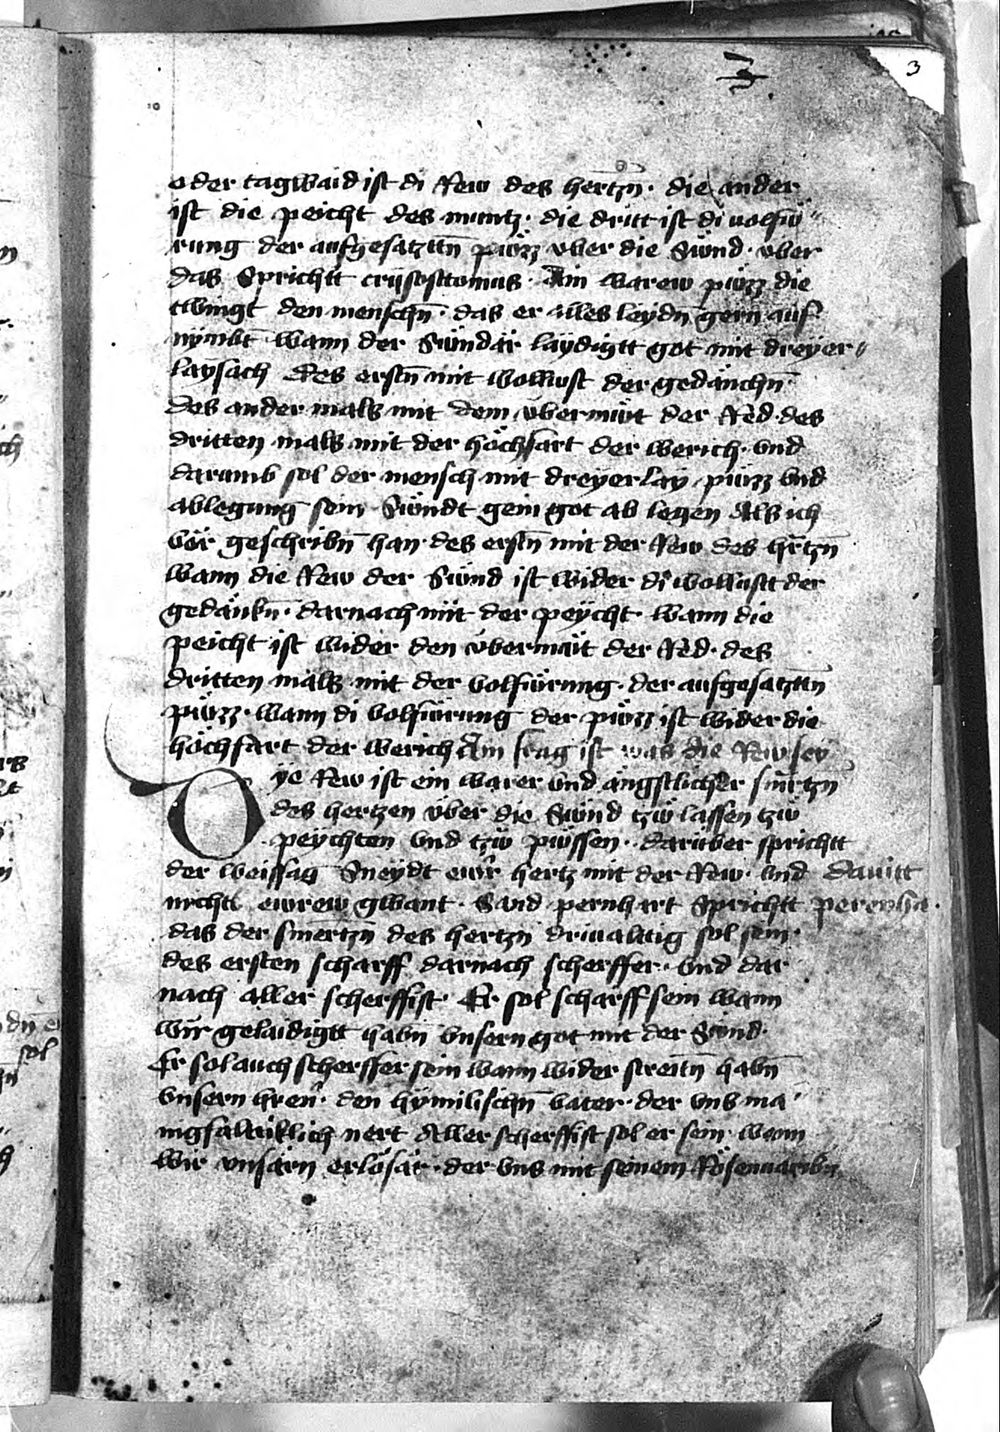 3
3
oder tagwaid ist di Rew des hertzn̄ · die ander
ist die peicht des muntz · die dritt ist di uolfuͤ⸗
rung der aufgesatzttn̄ puͤzz vber die Suͤnd · vber
das Sprichtt crijsosttomus · Ain warew puͤzz die
twingt den menschn̄ · das er alles leydn̄ gern auf
nymbt · wann der Suͤndär läydigtt got mit dreyer⸗
laysach Des erstn̄ mit wollust der gedänchn̄ ·
Des ander mals mit dem vbermuͤt der Red · des
dritten mals mit der höchfart der werich · vnd
darumb sol der mensch mit dreyerlay puͤzz vnd
ablegung sein Suͤndt gein got ab legen Als ich
vor geschribn̄ han · des erstn̄ mit der Rew des hr̄tzn̄
wann die Rew der Suͤnd ist wider di wollustt der
gedänkn̄ · darnach mit der peycht · wann die
peicht ist wider den vbermuͤt der Red · des
dritten mals mit der volfuͤrung · der aufgesatzttn̄
puͤzz · wann di volfuͤrung der puͤzz ist wider die
höchfart der werich Ain frag ist was die Rew sey
Dye Rew ist ein warer vnd ängstlicher smertzn̄
des hertzen vber die Suͤnd tzuͤ lassen tzuͤ
peychten vnd tzuͤ puͤssen · daruber sprichtt
der weissag Sneydt ewr hertz mit der Rew · vnd dauitt
nichtt ewrew gwant · Sand pernhart Sprichtt
das der smertzn̄ des hertzn̄ driualttig sol sein ·
des ersten scharff darnach scherffer · vnd dar
nach aller scherffist · Er sol scharff sein wann
wir gelaidigtt habn̄ vnsern got mit der Suͤnd ·
Er sol auch scherffer sein wann wider streitn̄ habn̄
vnsern hren̄ · den hymilischn̄ vater · der vns ma⸗
nigfaltiklich nert Aller scherffist sol er sein wann
wir vnsärn erlösär · der vns mit seinem Rosenuaribn̄